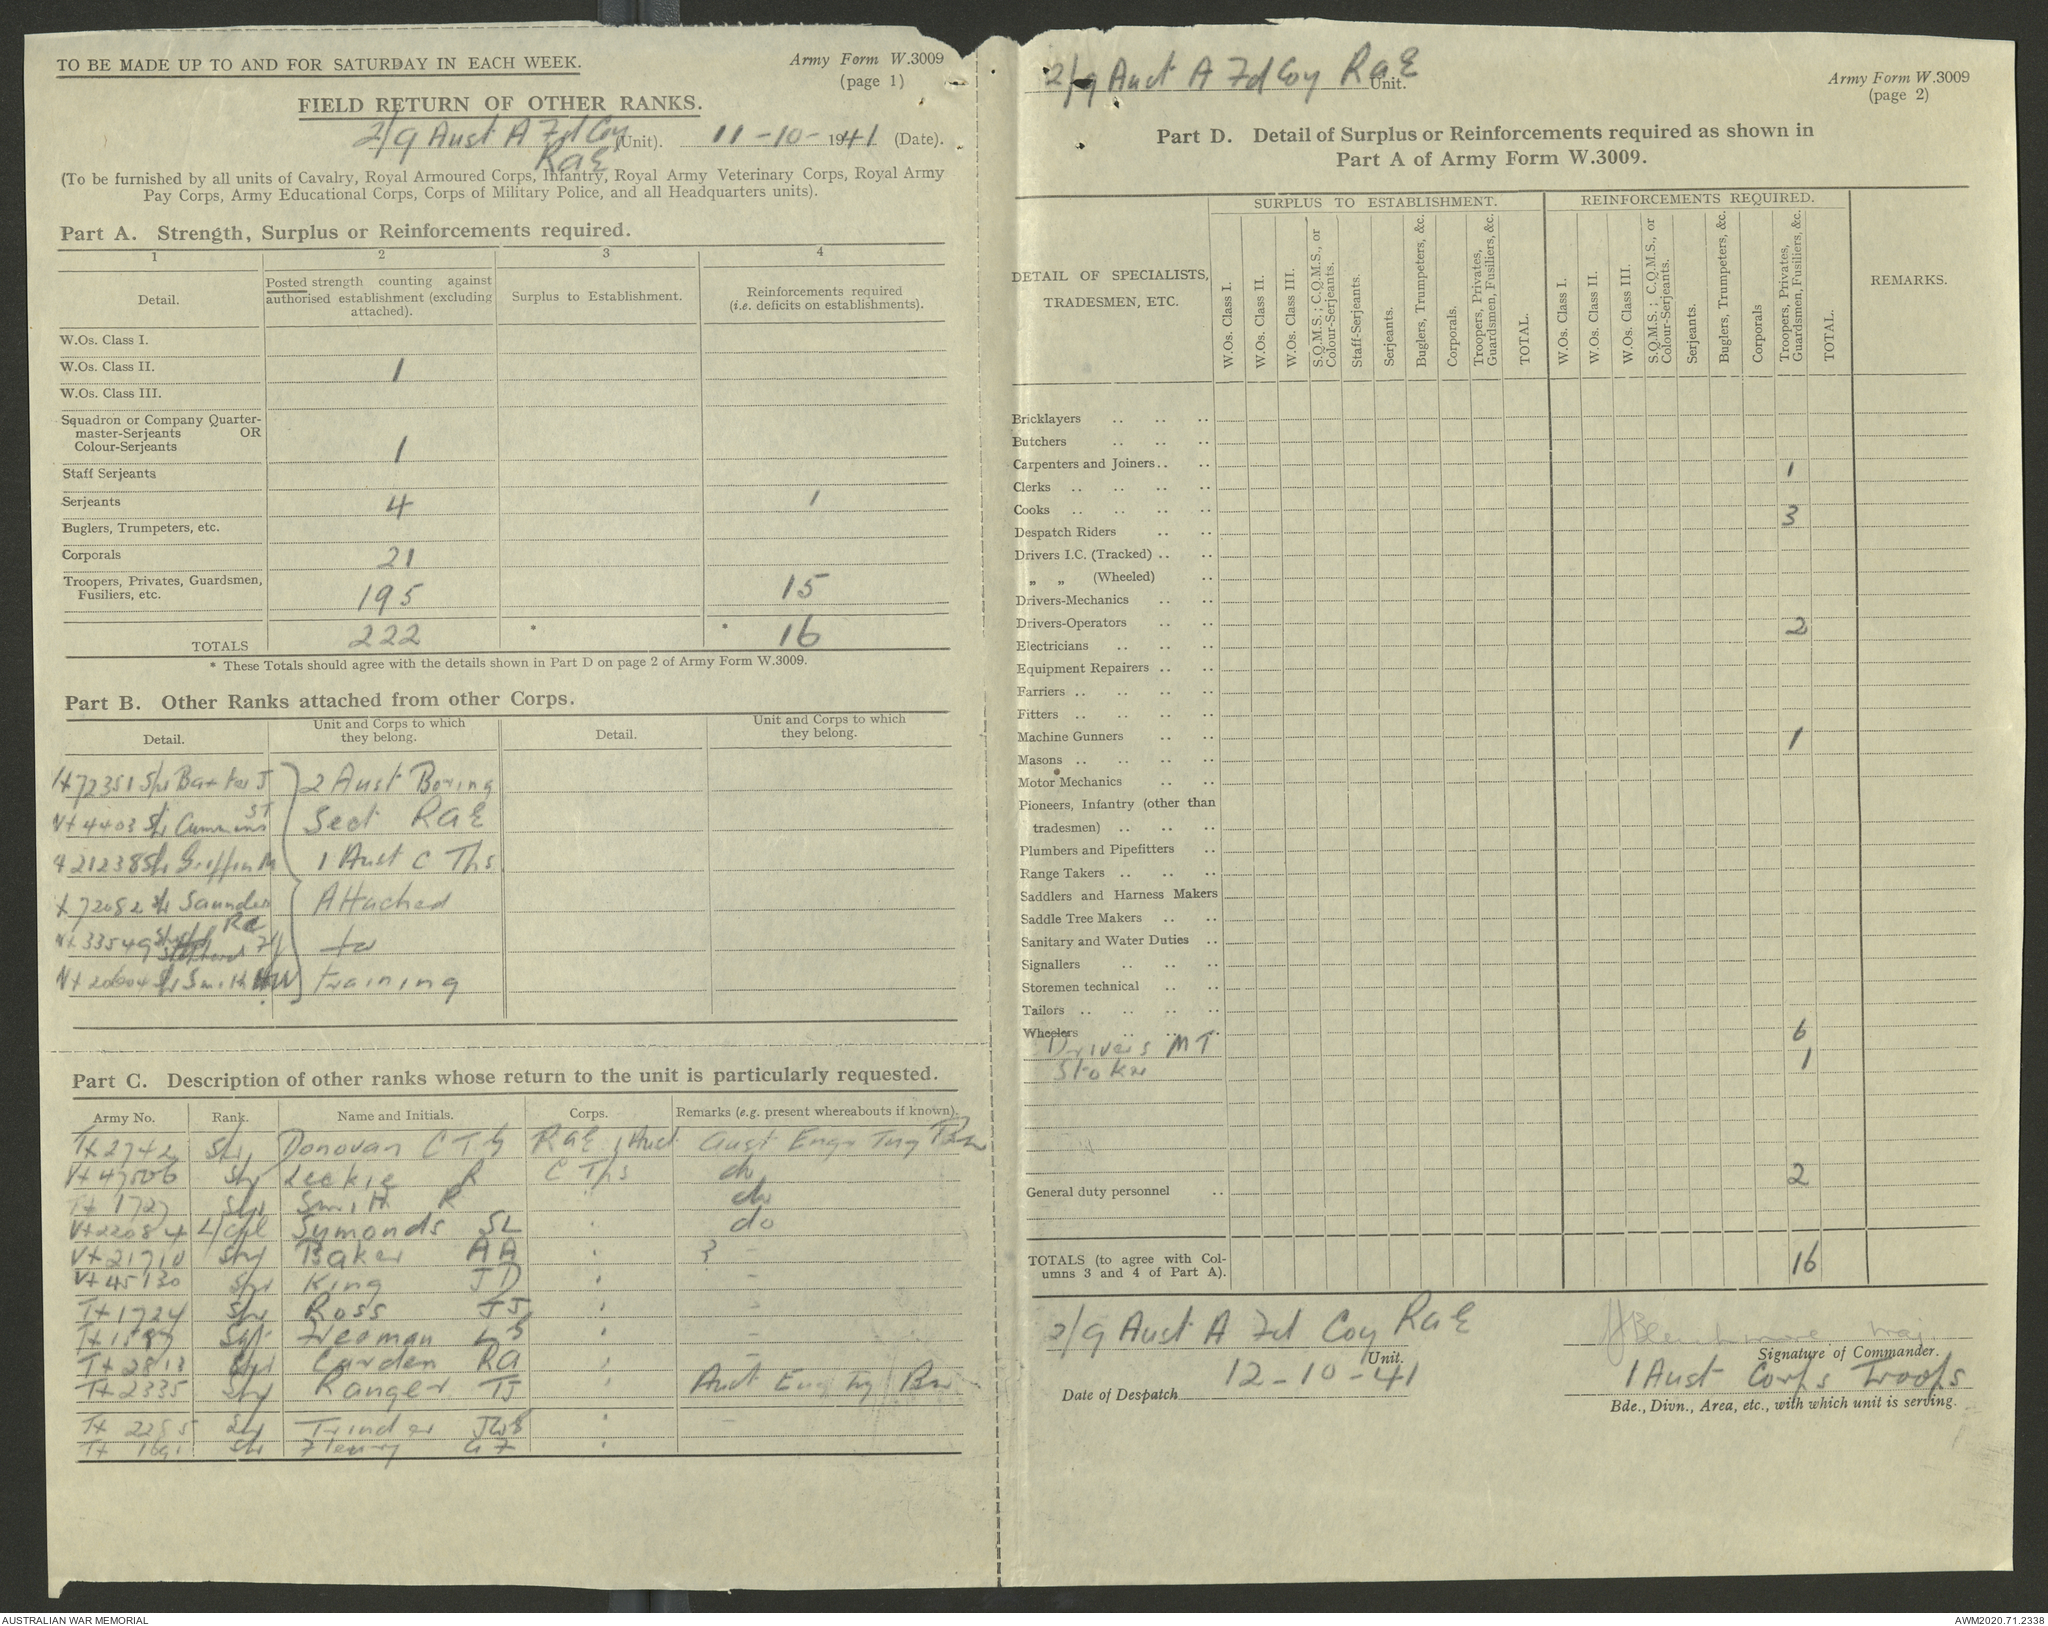 TO BE MADE UP TO AND FOR SATURDAY IN EACH WEEK.
Army Form W.3009
(page 1)
FIELD RETURN OF OTHER RANKS.
2/9 Aust A Fd Coy (Unit). 11-10-1941 (Date).
RAE
(To be furnished by all units of Cavalry, Royal Armoured Corps, Infantry, Royal Army Veterinary Corps, Royal Army
Pay Corps, Army Educational Corps, Corps of Military Police, and all Headquarters units).
Part A. Strength, Surplus or Reinforcements required.
1 2 3 4
Detail.
Posted strength counting against
authorised establishment (excluding
attached).
Surplus to Establishment.
Reinforcements required
(i.e. deficits on establishments).
W.Os. Class I.
W.Os. Class II. 1
W.Os. Class III.
Squadron or Company Quarter-
master-Serjeants OR
Colour-Serjeants 1
Staff Serjeants
Serjeants 4 1
Buglers, Trumpeters, etc.
Corporals 21
Troopers, Privates, Guardsmen,
Fusiliers, etc. 195 15
TOTALS 222 * * 16
* These Totals should agree with the details shown in Part D on page 2 of Army Form W.3009.
Part B. Other Ranks attached from other Corps.
Detail.
Unit and Corps to which
they belong.
Detail.
Unit and Corps to which
they belong.
Spr Baxter J 2 Aust Boring
Spr Cummins ST Sect RAE
Spr Griffin M 1 Aust C Tps
Spr Saunders RC Attached
to
Spr Smith HW training
Part C. Description of other ranks whose return to the unit is particularly requested.
Army No. Rank. Name and Initials. Corps. Remarks (e.g. present whereabouts if known).
Tx2742 Spr Donovan CTG RAE 1 Aust Aust Engr Tng
Vx47506 Spr Leekie R C Tps do
Tx1727 Spr Smith R " do
Vx22084 L/Cpl Symonds SL " do
Vx21710 Spr Baker AA " ? -
Vx45130 Spr King JD " -
Tx1724 Spr Ross JJ " -
Spr Freeman LG " -
Tx2813 Spr Carden RA " -
Tx2335 Spr Ranger TJ " Aust Eng Tng Bn
Spr Trinder " -
Spr "
2/9 Aust A Fd Coy RAE
Unit.
Army Form W.3009
(page 2)
Part D. Detail of Surplus or Reinforcements required as shown in
Part A of Army Form W.3009.
DETAIL OF SPECIALISTS,
TRADESMEN, ETC.
SURPLUS TO ESTABLISHMENT.
W.Os. Class I.
W.Os. Class II.
W.Os. Class III.
S.Q.M.S.; C.Q.M.S., or
Colour-Serjeants.
Staff-Serjeants.
Serjeants.
Buglers, Trumpeters, &c.
Corporals.
Troopers, Privates,
Guardsmen, Fusiliers, &c.
TOTAL.
REINFORCEMENTS REQUIRED.
W.Os. Class I.
W.Os. Class II.
W.Os. Class III.
S.Q.M.S.; C.Q.M.S., or
Colour-Serjeants.
Serjeants.
Buglers, Trumpeters, &c.
Corporals
Troopers, Privates,
Guardsmen, Fusiliers, &c.
TOTAL.
REMARKS.
Bricklayers
Butchers
Carpenters and Joiners 1
Clerks
Cooks 3
Despatch Riders
Drivers I.C. (Tracked)
„ „ (Wheeled)
Drivers-Mechanics
Drivers-Operators 2
Electricians
Equipment Repairers
Farriers
Fitters
Machine Gunners 1
Masons
Motor Mechanics
Pioneers, Infantry (other than
tradesmen)
Plumbers and Pipefitters
Range Takers
Saddlers and Harness Makers
Saddle Tree Makers
Sanitary and Water Duties
Signallers
Storemen technical
Tailors
Wheelers
Drivers MT 6
Stoker 1
General duty personnel 2
TOTALS (to agree with Col-
umns 3 and 4 of Part A). 16
2/9 Aust A Fd Coy RAE
Unit.
Maj.
Signature of Commander.
Date of Despatch 12-10-41
1 Aust Corps Troops
Bde., Divn., Area, etc., with which unit is serving.
AUSTRALIAN WAR MEMORIAL
AWM2020.71.2338